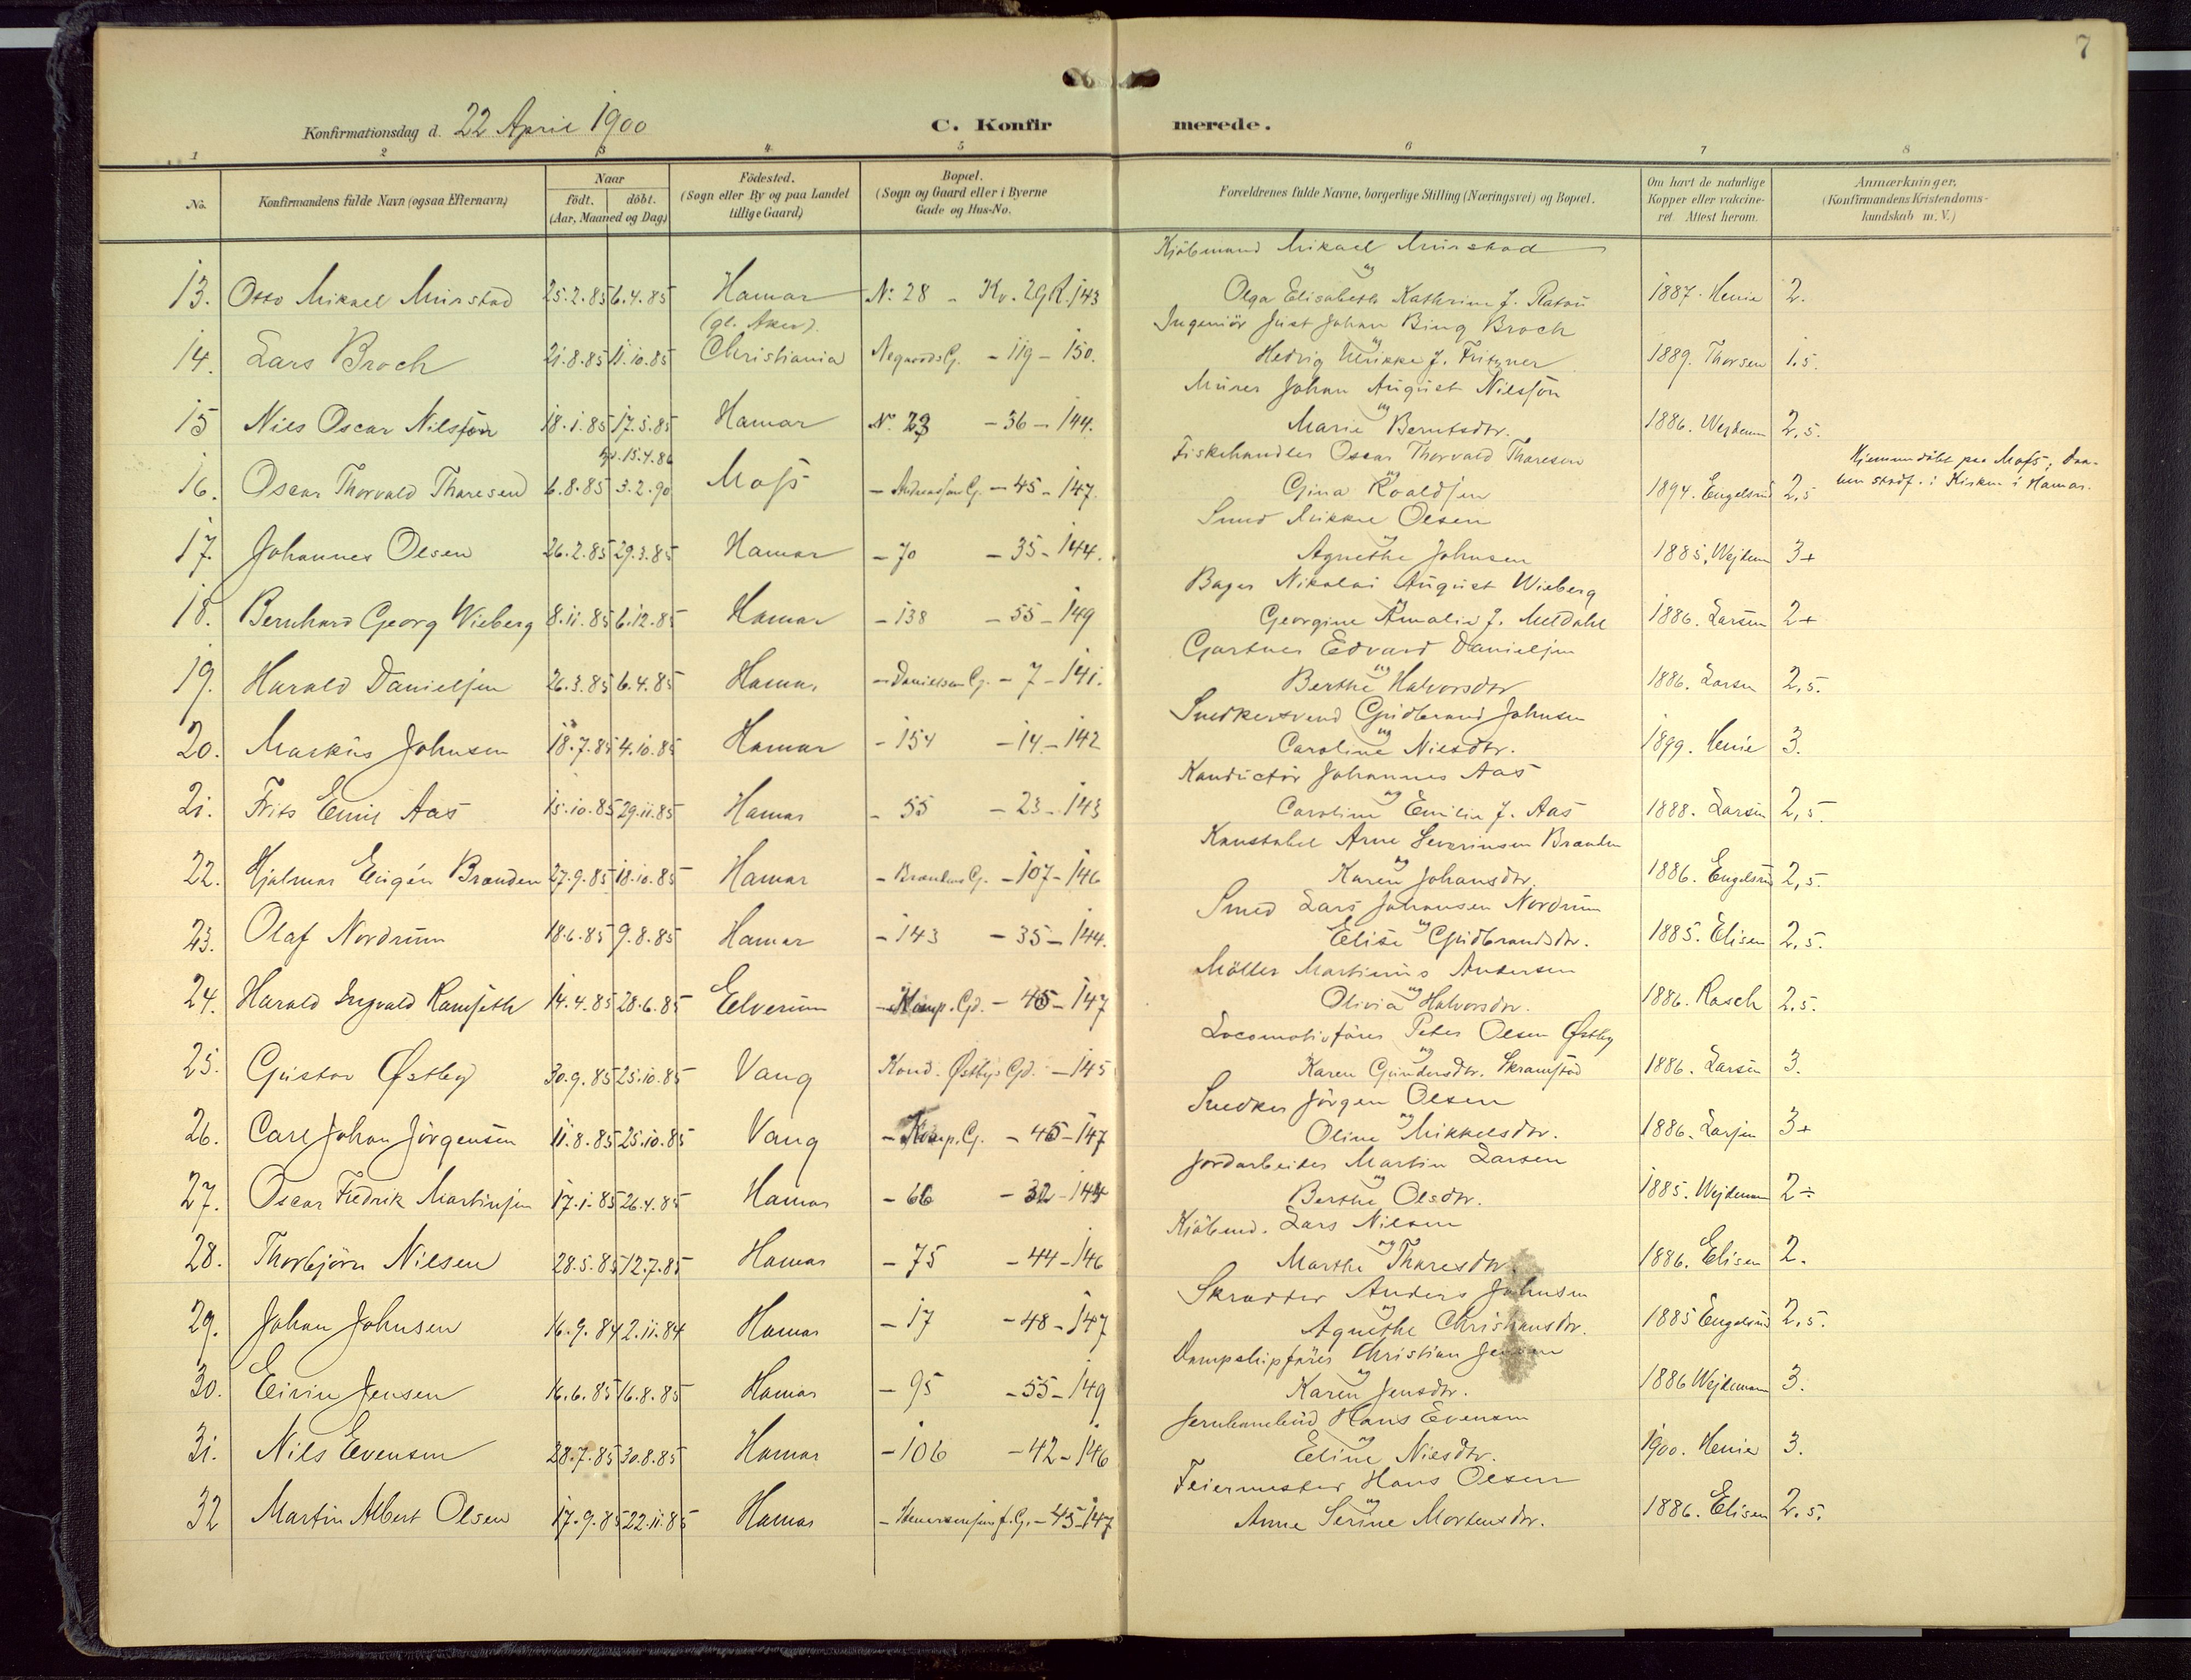 7
Konfirmationsdag d. 22 April 1900
C. Konfirmerede.
1 2 3 4 5 6 7 8
No. Konfirmandens fulde Navn (ogsaa Efternavn) Naar födt. döbt. (Aar, Maaned og Dag) Födested. (Sogn eller By og paa Landet tillige Gaard) Bopæl. (Sogn og Gaard eller i Byerne Gade og Hus-No. Forældrenes fulde Navne, borgerlige Stilling (Næringsvei) og Bopæl. Om havt de naturlige Kopper eller vakcineret. Attest herom. Anmærkninger. (Konfirmandens Kristendomskundskab m. V.)
Kjöbmand Mikael Mürstad
13. Otto Mikael Mürstad 25.2.85 6.4.85 Hamar N: 28 - Kv. 29 R. 143 og Olga Elisabeth Kathrine f. Platou 1887. Henie 2.
(gl. Aker). Ingeniör Just Johan Bing Broch
14. Lars Broch 21.8.85 11.10.85 Christiania G. - 119 - 150. og Hedvig Ulrikke f. Fritzner 1889. Thorsen 1.5.
Mürer Johan August Nilsson
15 Nils Oscar Nilsson 18.1.85 17.5.85 Hamar N: 23 - 36 - 144. og Marie Berntsdtr. 1886. Wejdeman 2,5.
15.4.86 Fiskehandler Oscar Thorvald Tharesen Hjemmedöbt paa Moss; Daaben stadf. i Kirken i Hamar.
16. Oscar Thorvald Tharesen 6.8.85 3.2.90 Moss - G. - 45 - 147. og Gina Roaldsen 1894. Engelsrud 2,5
Smed Mikkel Olsen
17. Johannes Olsen 26.2.85 29.3.85 Hamar - 70 - 35 - 144. og Agnethe Johnsen 1885. Wejdeman 3+
Bager Nikolai August Wieberg
18. Bernhard Georg Wieberg 8.11.85 6.12.85 Hamar - 138 - 55 - 149 og Georgine Amalia f. Meldahl 1886. Larsen 2+
Gartner Edvard Danielsen
19. Harald Danielsen 26.3.85 6.4.85 Hamar - Danielsen G. - 7 - 141. og Berthe Halvorsdtr 1886. Larsen 2,5.
Snedkersvend Gudbrand Johnsen
20. Markus Johnsen 18.7.85 4.10.85 Hamar - 154 - 14 - 142 og Caroline Nilsdtr. 1899. Henie 3.
Konductör Johannes Aas
21. Frits Emil Aas 15.10.85 29.11.85 Hamar - 55 - 23 - 143 og Caroline Emilie f. Aas 1888. Larsen 2,5.
Konstabel Arne Severinsen Brænden
22. Hjalmar Eugén Brænden 27.9.85 18.10.85 Hamar - Brændens G. - 107 - 146 og Karen Johansdtr. 1886. Engelsrud 2,5.
Smed Lars Johansen Nordrum
23. Olaf Nordrum 18.6.85 9.8.85 Hamar - 143 - 35 - 144. og Elise Gudbrandsdtr. 1885. Elisen 2,5.
Möller Martinius Andersen
24. Harald Ingvald Ramseth 14.4.85 28.6.85 Elverum - Komp. Gd. - 45 - 147 og Olivia Halvorsdtr. 1886. Rasch 2,5.
Locomotivförer Peter Olsen Østby
25. Gustav Østby 30.9.85 25.10.85 Vang Kond. Østbys Gd. - 145 og Karen Gundersdtr. Skramstad 1886. Larsen 3.
Snedker Jörgen Olsen
26. Carl Johan Jörgensen 11.8.85 25.10.85 Vang - Komp. G. - 45 - 147 og Oline Mikkelsdtr. 1886. Larsen 3+
Jordarbeider Martin Larsen
27. Oscar Fredrik Martinsen 17.1.85 26.4.85 Hamar - 66 - 32 - 144 og Berthe Olsdtr. 1885. Wejdeman 2÷
Kjöbmd. Lars Nilsen
28. Thorbjörn Nilsen 28.5.85 12.7.85 Hamar - 75 - 44 - 146 og Marthe Tharesdtr. 1886. Elisen 2.
Skrædder Anders Johnsen
29. Johan Johnsen 16.9.84 2.11.84 Hamar - 17 - 48 - 147 og Agnethe Christiansdtr. 1885 Engelsrud 2,5.
Dampskipförer Christian Jensen
30. Eivin Jensen 16.6.85 16.8.85 Hamar - 95 - 55 - 149 og Karen Jensdtr. 1886 Wejdemann 3.
Jernbanebud Hans Evensen
31. Nils Evensen 28.7.85 30.8.85 Hamar - 106 - 42 - 146 og Eline Nilsdtr. 1900. Henie 3.
Feiermester Hans Olsen
32 Martin Albert Olsen 17.9.85 22.11.85 Hamar - G. - 45 - 147 og Anne Serine Mortensdtr. 1886. Elisen 2.5.